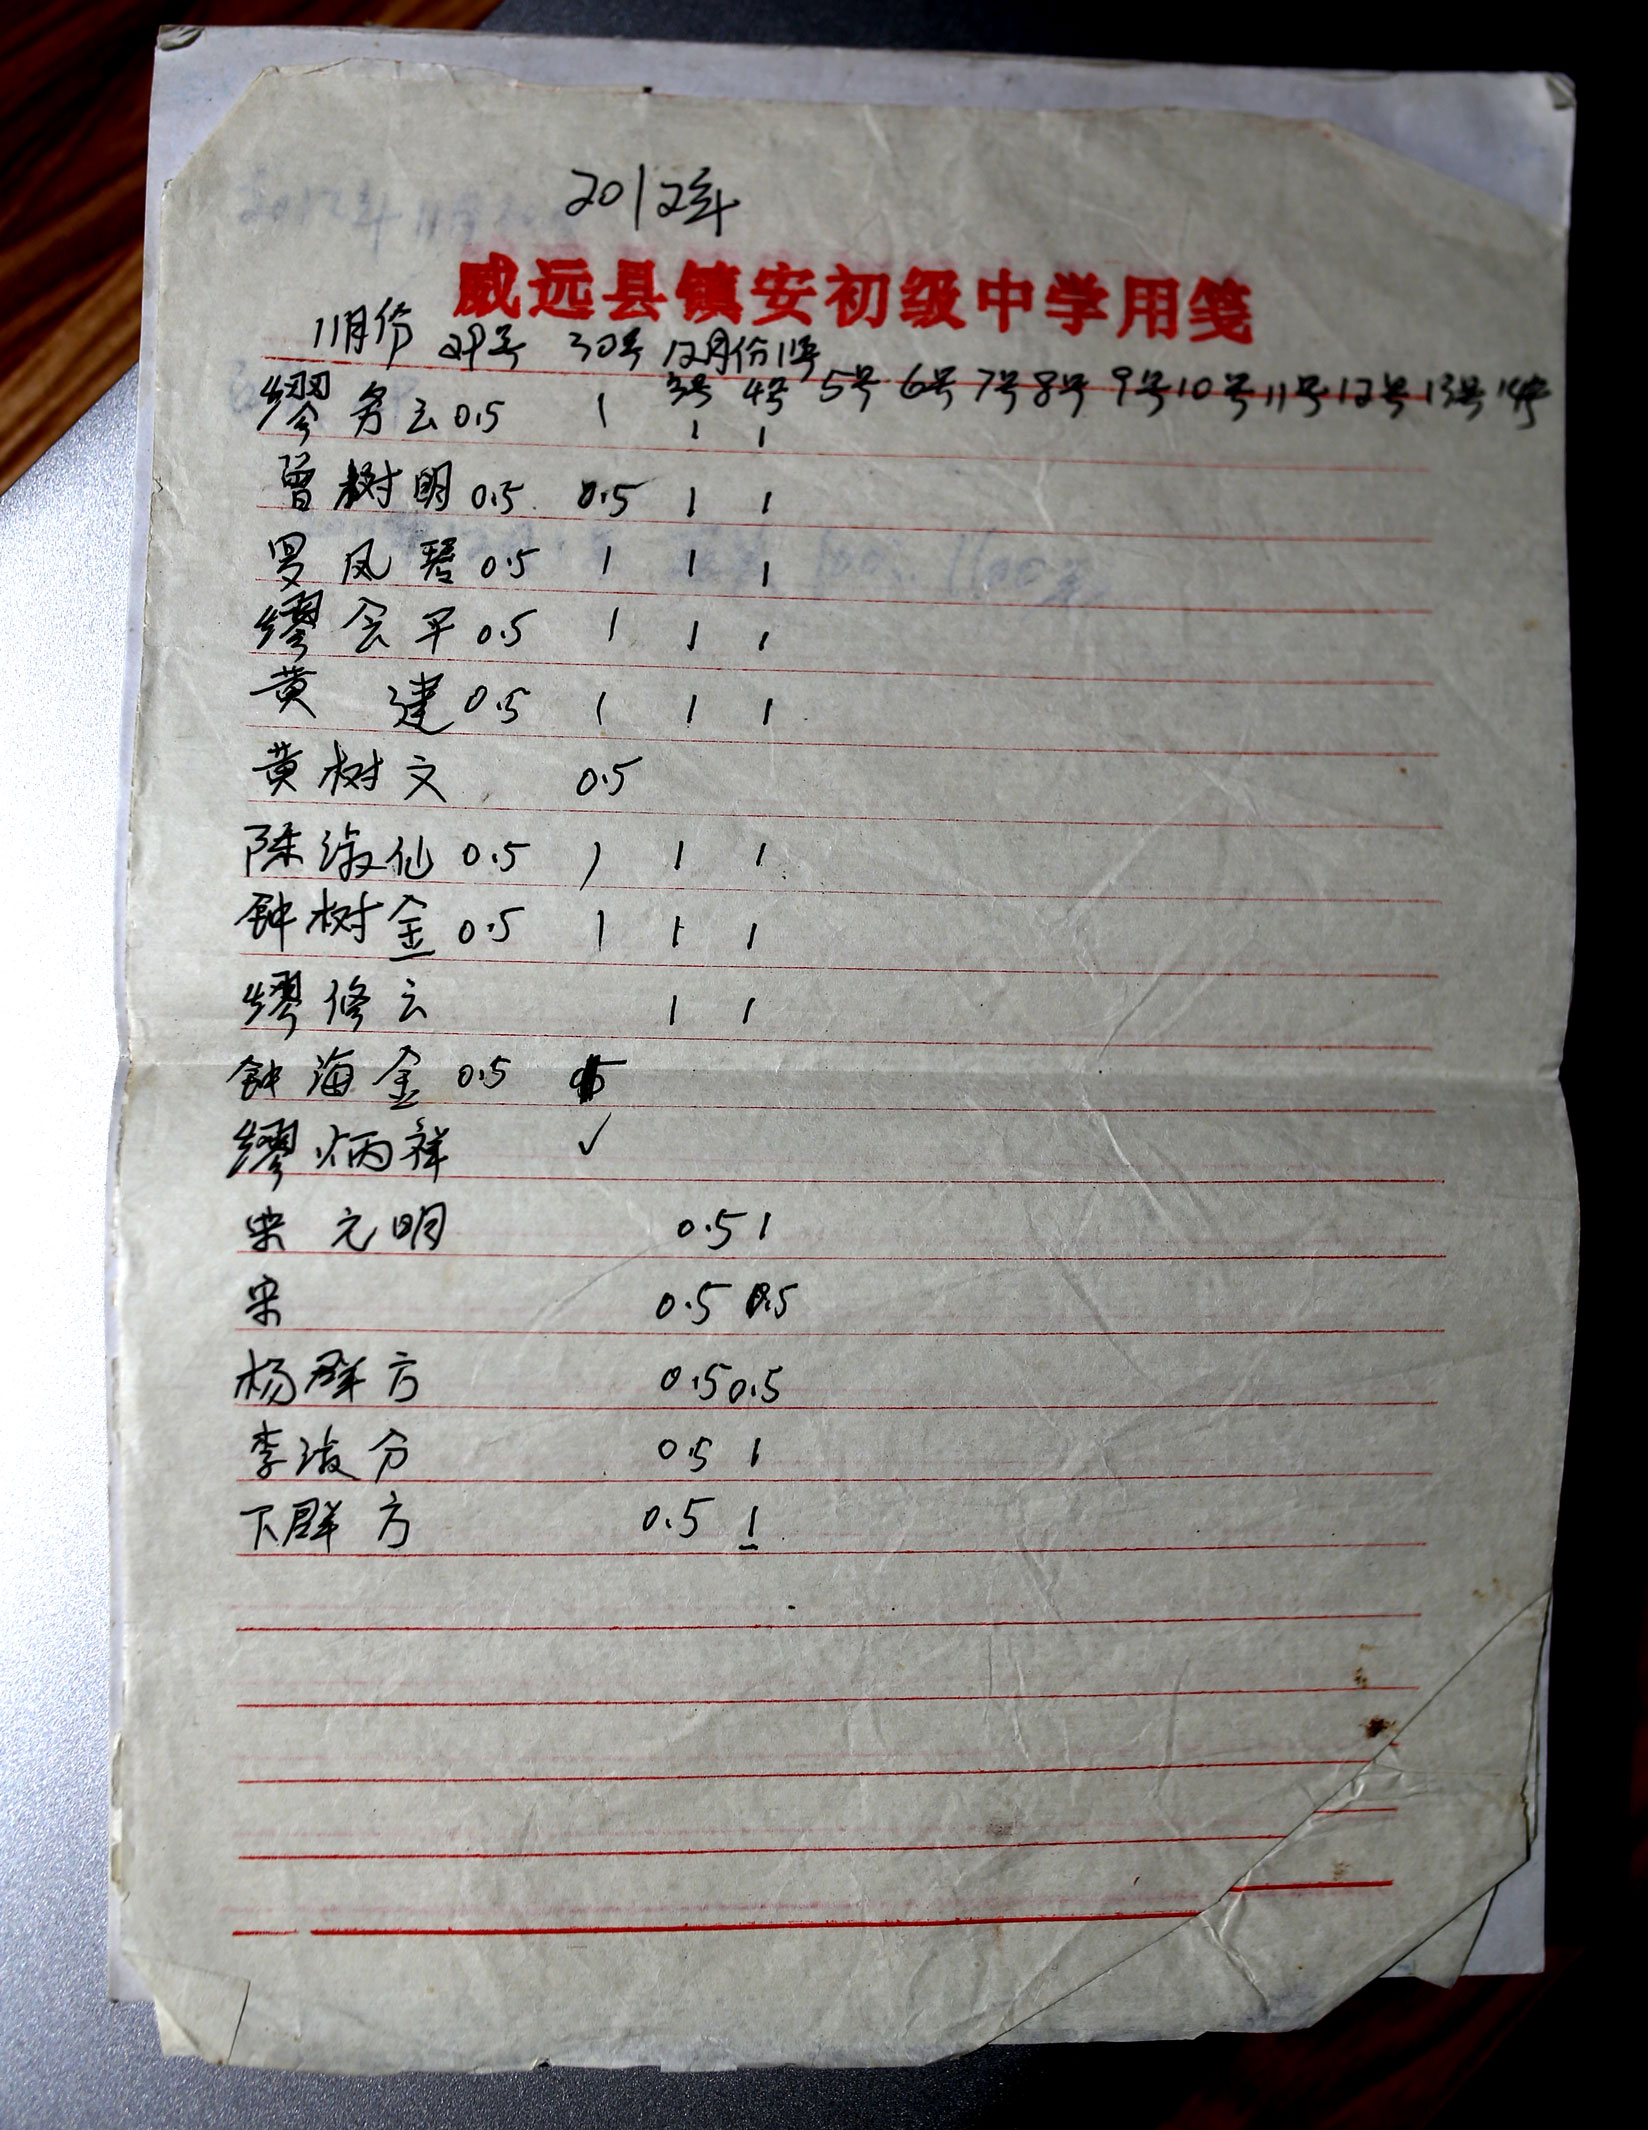 2012年
威远县镇安初级中学用笺
11月份 29号 30号 12月份1号
3号 4号 5号 6号 7号 8号 9号 10号 11号 12号 13号 14号
缪务云 0.5 1 1 1
曾树明 0.5 0.5 1 1
罗凤琴 0.5 1 1 1
缪会平 0.5 1 1 1
黄建 0.5 1 1 1
黄树文 0.5
陈淑仙 0.5 1 1 1
钟树金 0.5 1 1 1
缪修云 1 1
钟海金 0.5
缪炳祥 ✓
宋元明 0.5 1
宋 0.5 0.5
杨群方 0.5 0.5
李淑分 0.5 1
下群方 0.5 1